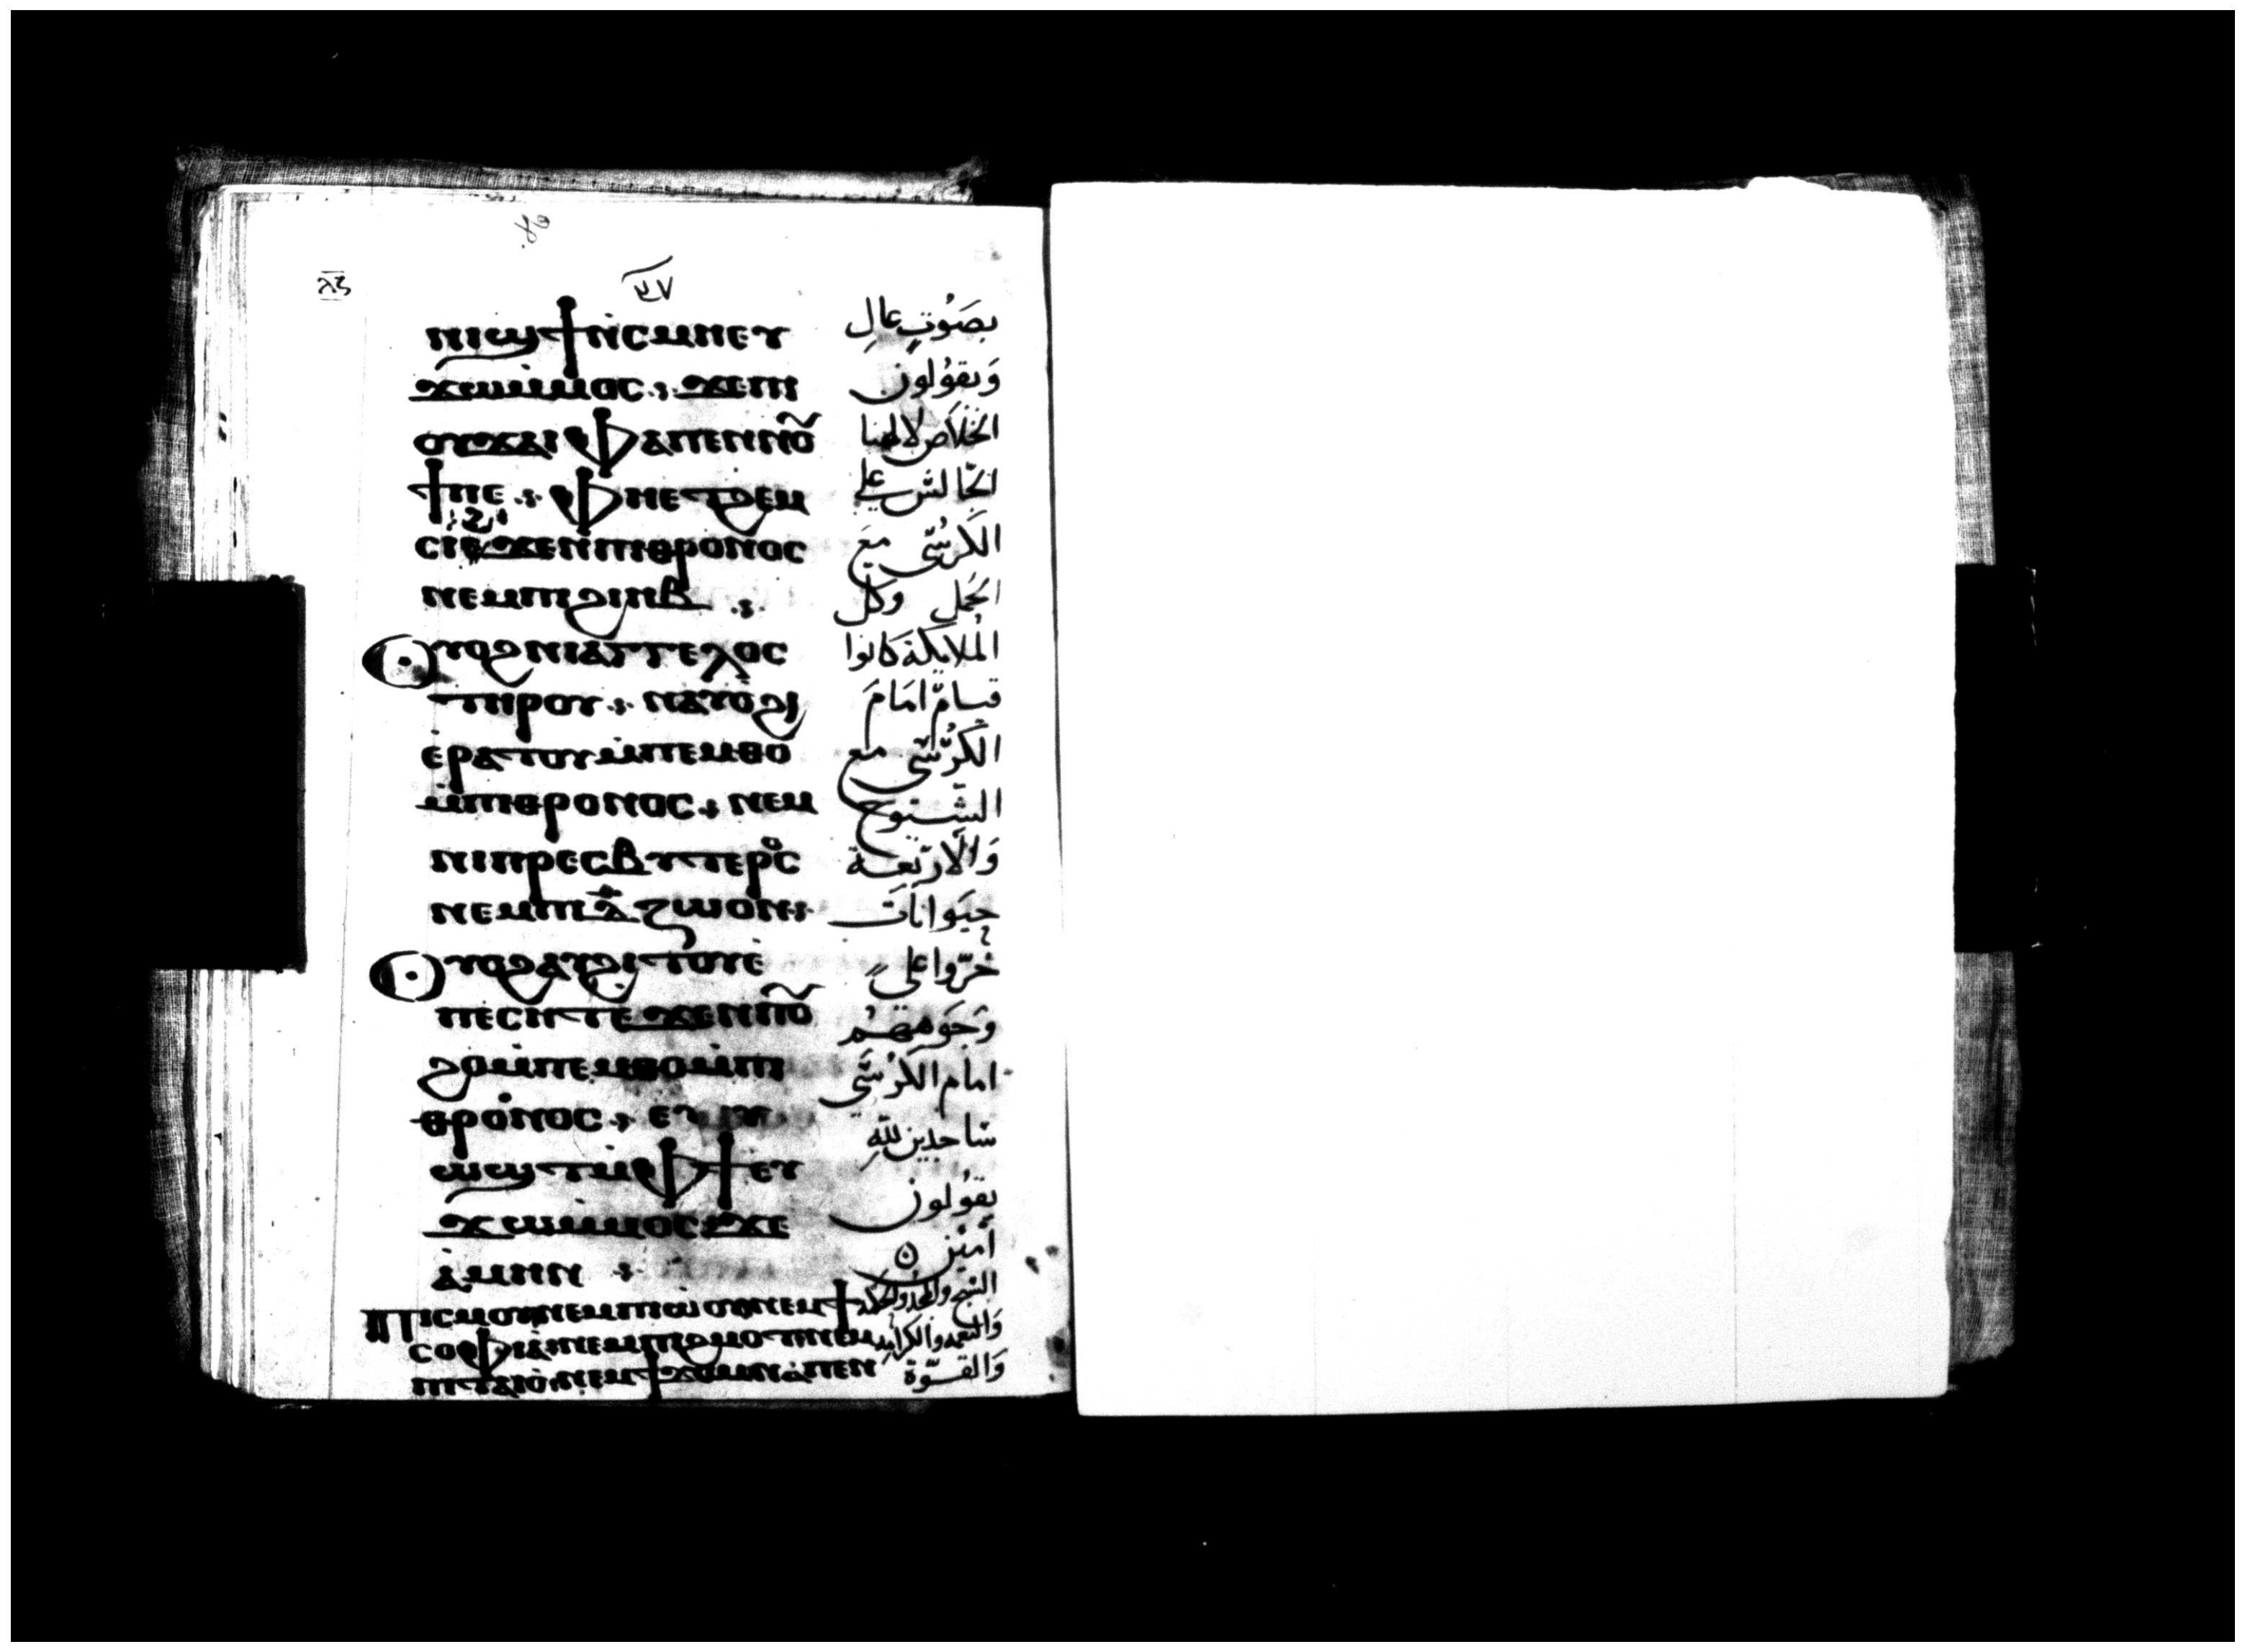 ⲗⲍ
ⲛⲓϣϯⲛ̀ⲥⲙⲏⲉⲩ
ϫⲱⲙ̀ⲙⲟⲥ ϫⲉⲡⲓ
ⲟⲩϫⲁⲓ ⲫⲁⲡⲉⲛⲛⲟ̅
ϯⲡⲉ ⲫⲏⲉⲧϩⲉⲙ
ⲥⲓϩⲓϫⲉⲛⲡⲓⲑⲣⲟⲛⲟⲥ
ⲛⲉⲙⲡⲓϩⲓⲏⲃ
ⲟⲩⲟϩⲛⲓⲁⲅⲅⲉⲗⲟⲥ
ⲧⲏⲣⲟⲩ ⲛⲁⲩⲟ̀ϩⲓ
ⲉ̀ⲣⲁⲧⲟⲩⲙ̀ⲡⲉⲙⲑⲟ
ⲙ̀ⲡⲓⲑⲣⲟⲛⲟⲥ ⲛⲉⲙ
ⲛⲓⲡⲣⲉⲥⲃⲩⲧⲉⲣⲟⲥ
ⲛⲉⲙⲡⲓⲇ̅ⲛⲍⲱⲟⲛ
ⲟⲩⲟϩⲁⲩϩⲓⲧⲟⲩⲉ̀
ⲡⲉⲥⲏⲧⲉϫⲉⲛⲡⲟ̅
ϩⲟⲙ̀ⲡⲉⲙⲑⲟⲙ̀ⲡⲓ
ⲑⲣⲟⲛⲟⲥ
ⲱϣⲧⲙ̀ⲫϯⲉⲩ
ϫⲱⲙ̀ⲙⲟⲥϫⲉ
ⲁ̀ⲙⲏⲛ
ⲡⲓⲥⲙⲟⲩⲛⲉⲙⲡⲓⲱ̀ⲟⲩⲛⲉⲙϯ
ⲥⲟⲫⲓⲁ̀ⲛⲉⲙⲡⲓϩⲙⲟⲧⲛⲉⲙ
ⲡⲓⲧⲁⲓⲟ̀ⲛⲉⲙϯϫⲟⲙ
بصَوُتٍ عالِ
وَيقوُلون
الخلاَص لالهنا
الجَالس علي
الكرُسّي معَ
الحَمل وكل
الملايكَة كانوا
قيامّ امَامَ
الكرُسّي مع
الشيوخ
وَالاربَعة
حيَوانات
خرّوا علي
وَجَوههمُ
امام الكرُسّي
سَاجدين للّهِ
يقوُلون
أميْن
والمجد والحكمه
وَالنعمه والكرامه
وَالقوّة